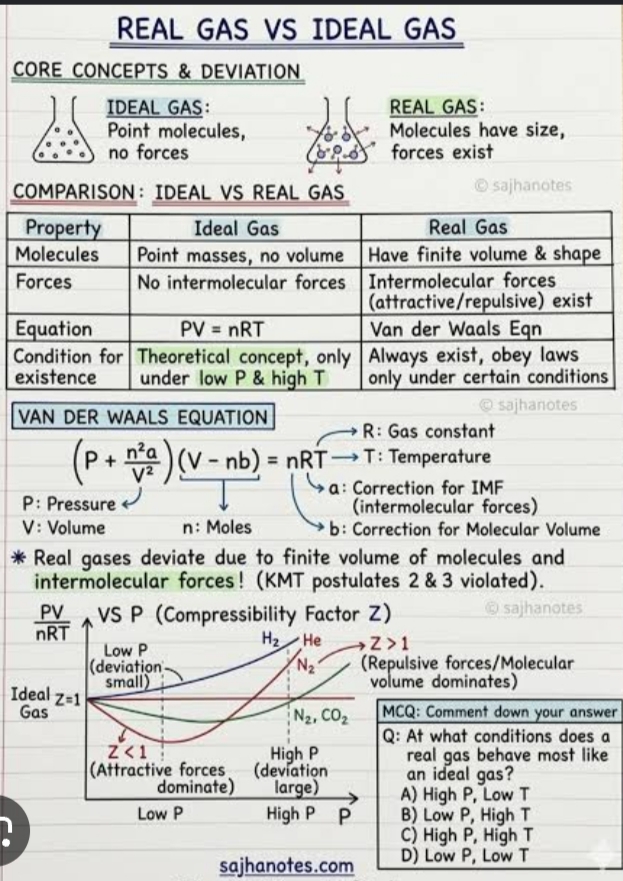 REAL GAS VS IDEAL GAS
CORE CONCEPTS & DEVIATION
IDEAL GAS:
Point molecules,
no forces
REAL GAS:
Molecules have size,
forces exist
© sajhanotes
COMPARISON: IDEAL VS REAL GAS
Property Ideal Gas Real Gas
Molecules Point masses, no volume Have finite volume & shape
Forces No intermolecular forces Intermolecular forces
(attractive/repulsive) exist
Equation PV = nRT Van der Waals Eqn
Condition for Theoretical concept, only Always exist, obey laws
existence under low P & high T only under certain conditions
© sajhanotes
VAN DER WAALS EQUATION
(P + n²a/V²)(V - nb) = nRT
R: Gas constant
T: Temperature
a: Correction for IMF
(intermolecular forces)
b: Correction for Molecular Volume
P: Pressure
V: Volume
n: Moles
* Real gases deviate due to finite volume of molecules and
intermolecular forces! (KMT postulates 2 & 3 violated).
© sajhanotes
PV/nRT VS P (Compressibility Factor Z)
H₂ He
N₂
Z>1
(Repulsive forces/Molecular
volume dominates)
Low P
(deviation
small)
Ideal Z=1
Gas
N₂, CO₂
Z<1
(Attractive forces
dominate)
High P
(deviation
large)
Low P High P P
MCQ: Comment down your answer
Q: At what conditions does a
real gas behave most like
an ideal gas?
A) High P, Low T
B) Low P, High T
C) High P, High T
D) Low P, Low T
sajhanotes.com